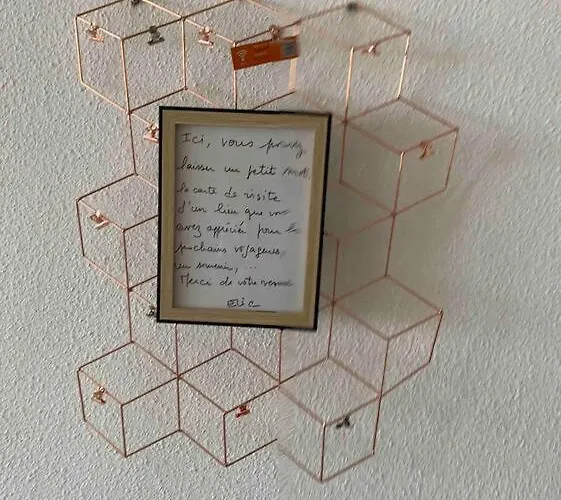 Ici, vous pouvez
laisser un petit mot,
la carte de visite
d'un lieu que vous
avez appréciée pour les
prochains voyageurs,
un souvenir, ...
Merci de votre venue